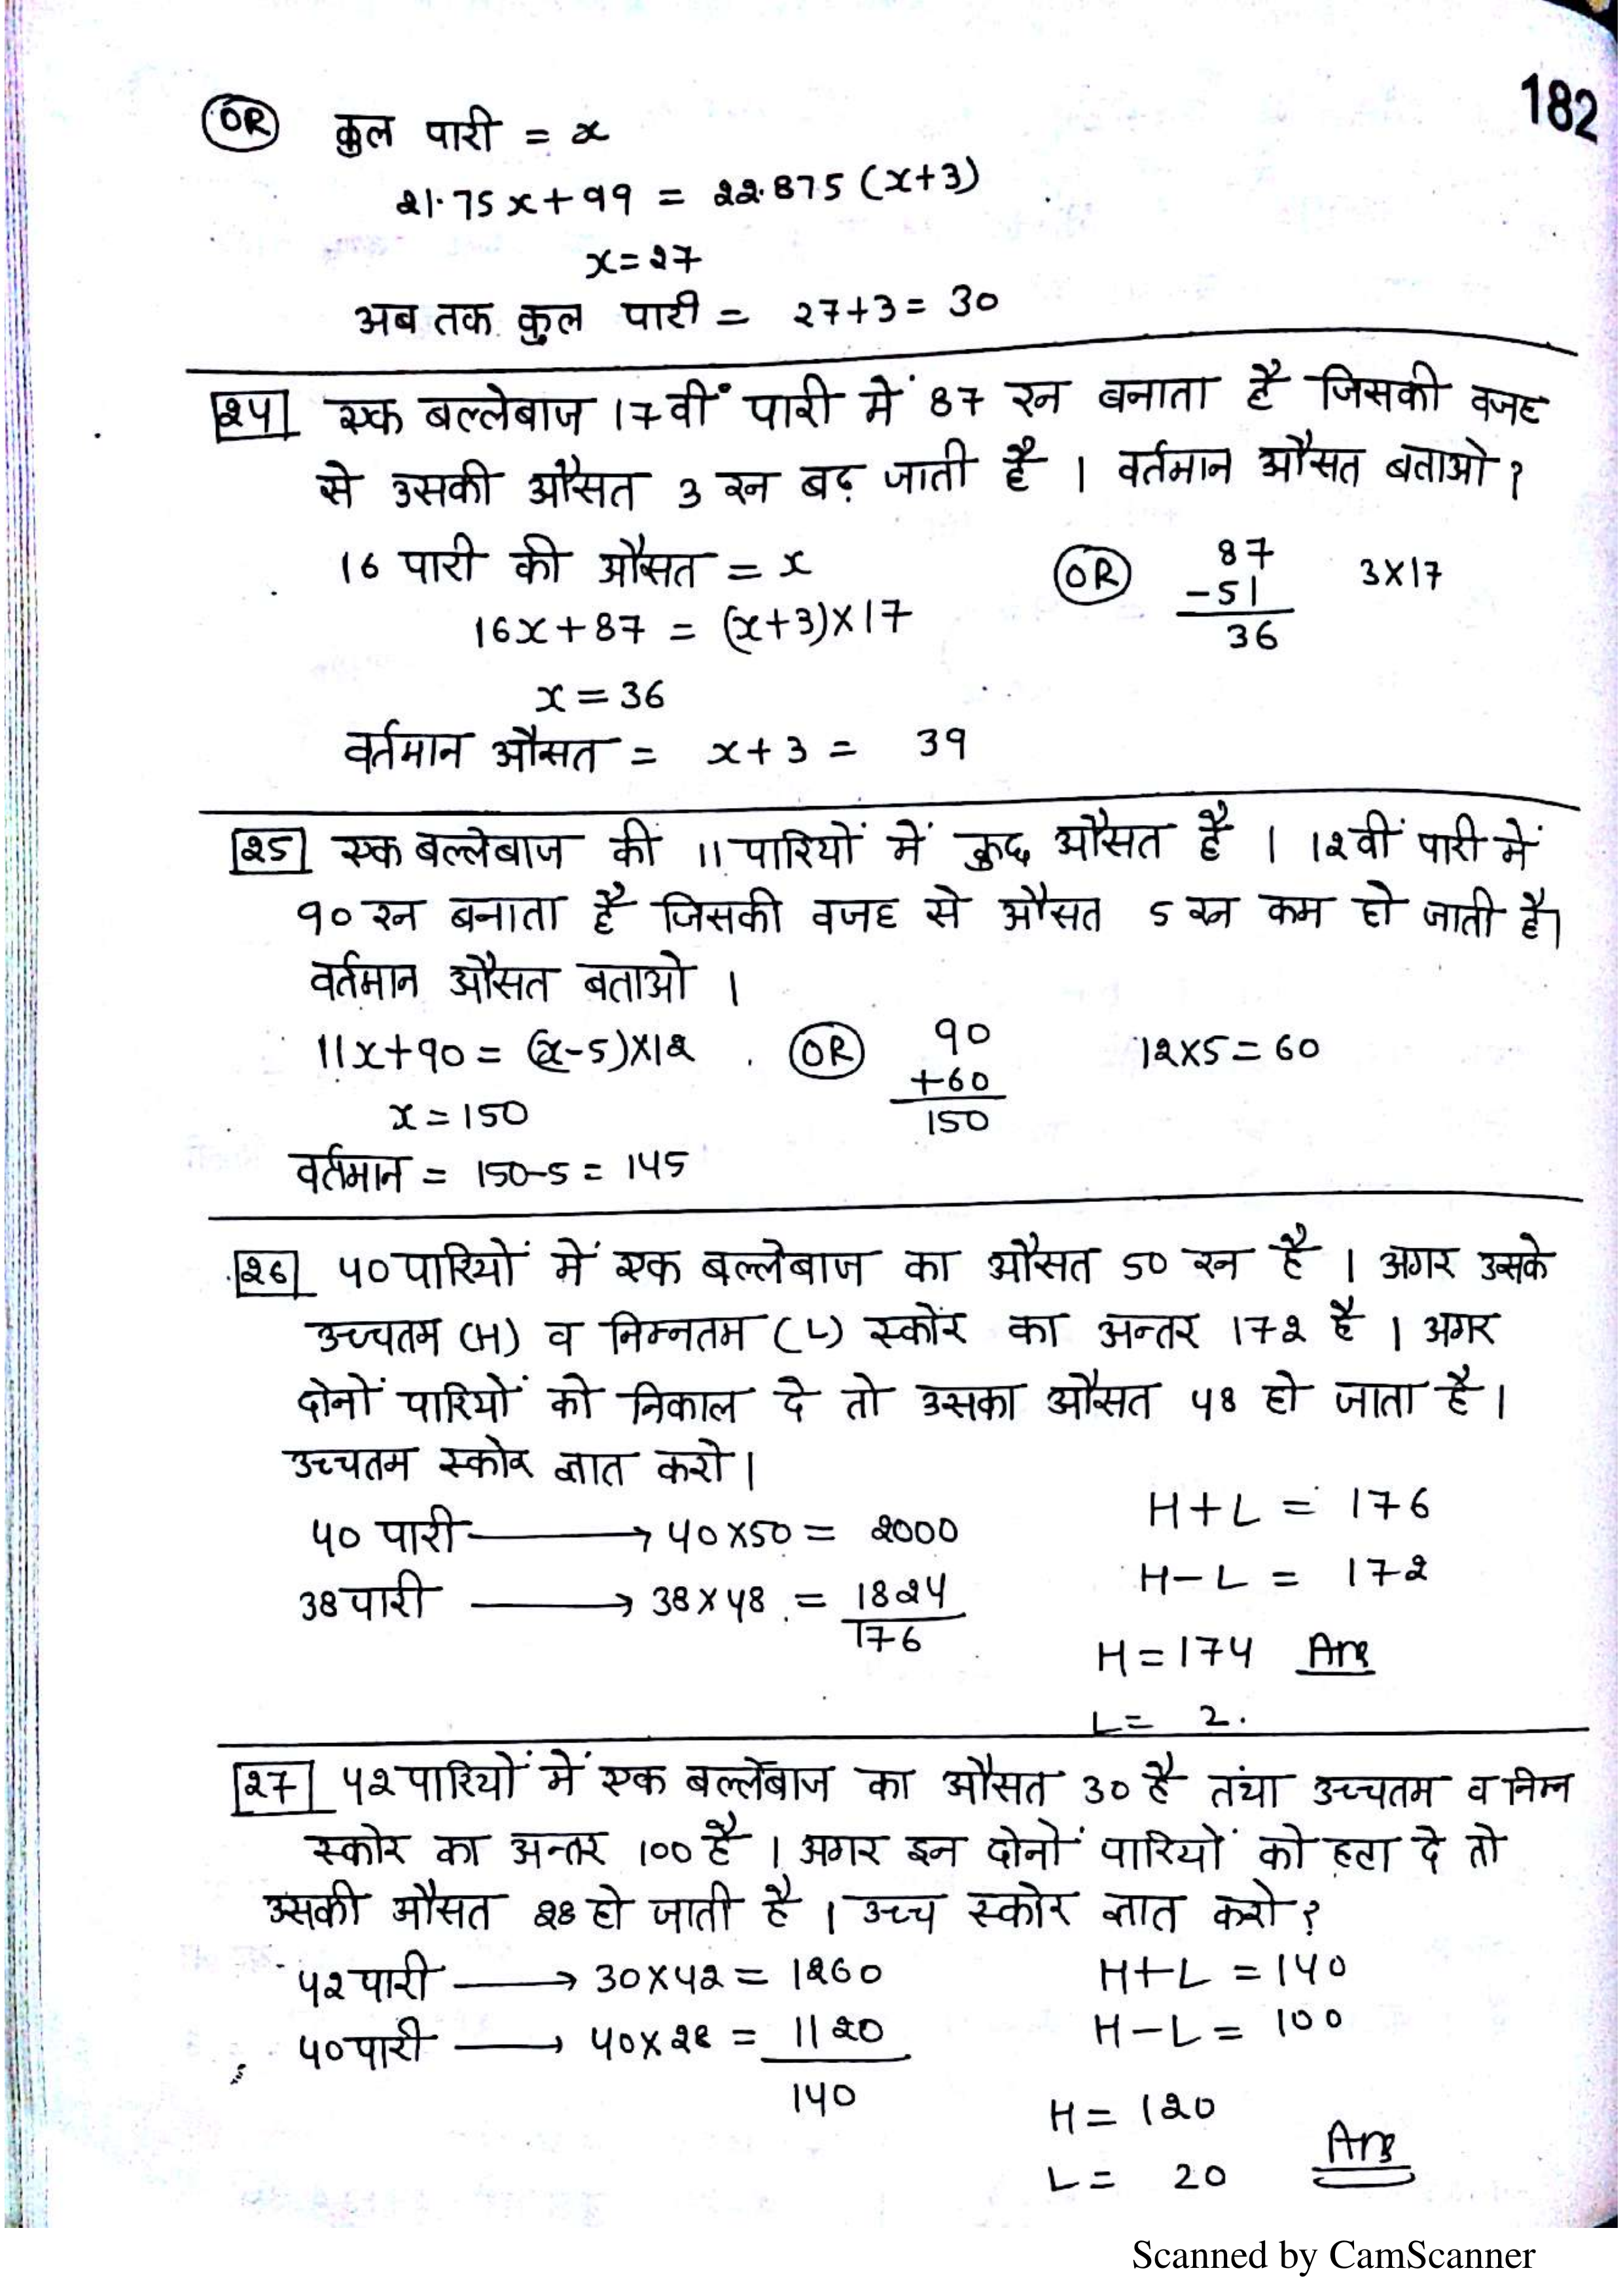 182
OR कुल पारी = x
21.75x+99 = 22.875 (x+3)
x=27
अब तक कुल पारी = 27+3= 30
24 एक बल्लेबाज 17वीं पारी में 87 रन बनाता है जिसकी वजह
से उसकी औसत 3 रन बढ़ जाती है । वर्तमान औसत बताओ ?
16 पारी की औसत = x OR 87 3X17
16x+87 = (x+3)X17 -51
36
x=36
वर्तमान औसत = x+3 = 39
25 एक बल्लेबाज की 11 पारियों में कुछ औसत है । 12वीं पारी में
90 रन बनाता है जिसकी वजह से औसत 5 रन कम हो जाती है।
वर्तमान औसत बताओ ।
11x+90= (x-5)X12 OR 90 12X5=60
+60
x=150 150
वर्तमान = 150-5= 145
26 40 पारियों में एक बल्लेबाज का औसत 50 रन है । अगर उसके
उच्चतम (H) व निम्नतम (L) स्कोर का अन्तर 172 है । अगर
दोनों पारियों को निकाल दे तो उसका औसत 48 हो जाता है।
उच्चतम स्कोर ज्ञात करो।
40 पारी → 40X50= 2000 H+L= 176
38 पारी → 38X48 = 1824 H-L = 172
176
H=174 Ans
L= 2.
27 42 पारियों में एक बल्लेबाज का औसत 30 है तथा उच्चतम व निम्न
स्कोर का अन्तर 100 है । अगर इन दोनों पारियों को हटा दे तो
उसकी औसत 28 हो जाती है । उच्च स्कोर ज्ञात करो?
42 पारी → 30X42= 1260 H+L =140
40 पारी → 40X28 = 1120 H-L= 100
140
H= 120
L= 20 Ans
Scanned by CamScanner